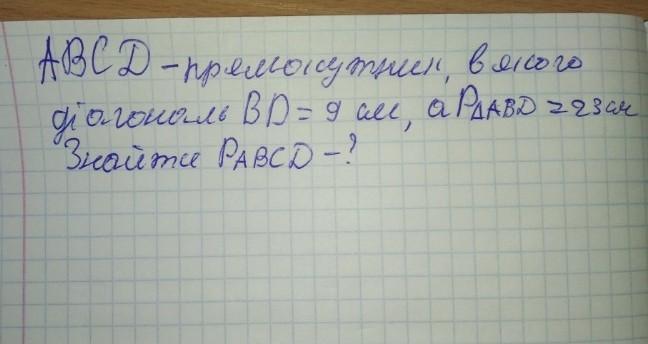 ABCD - прямокутник, в якого
діагональ BD = 9 см, а PΔABD = 23 см
Знайти PABCD - ?